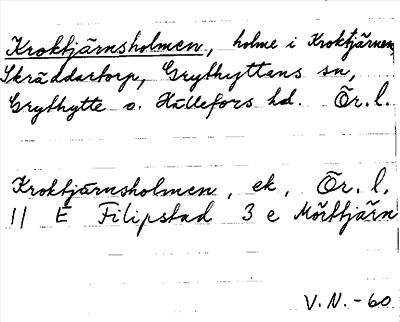 Kroktjärnsholmen, holme i Kroktjärnen,
Skräddartorp, Grythyttans sn,
Grythytte o. Hällefors hd. Ör. l.
Kroktjärnsholmen, ek, Ör. l.
11 E Filipstad 3 e Mörttjärn
V.N.-60